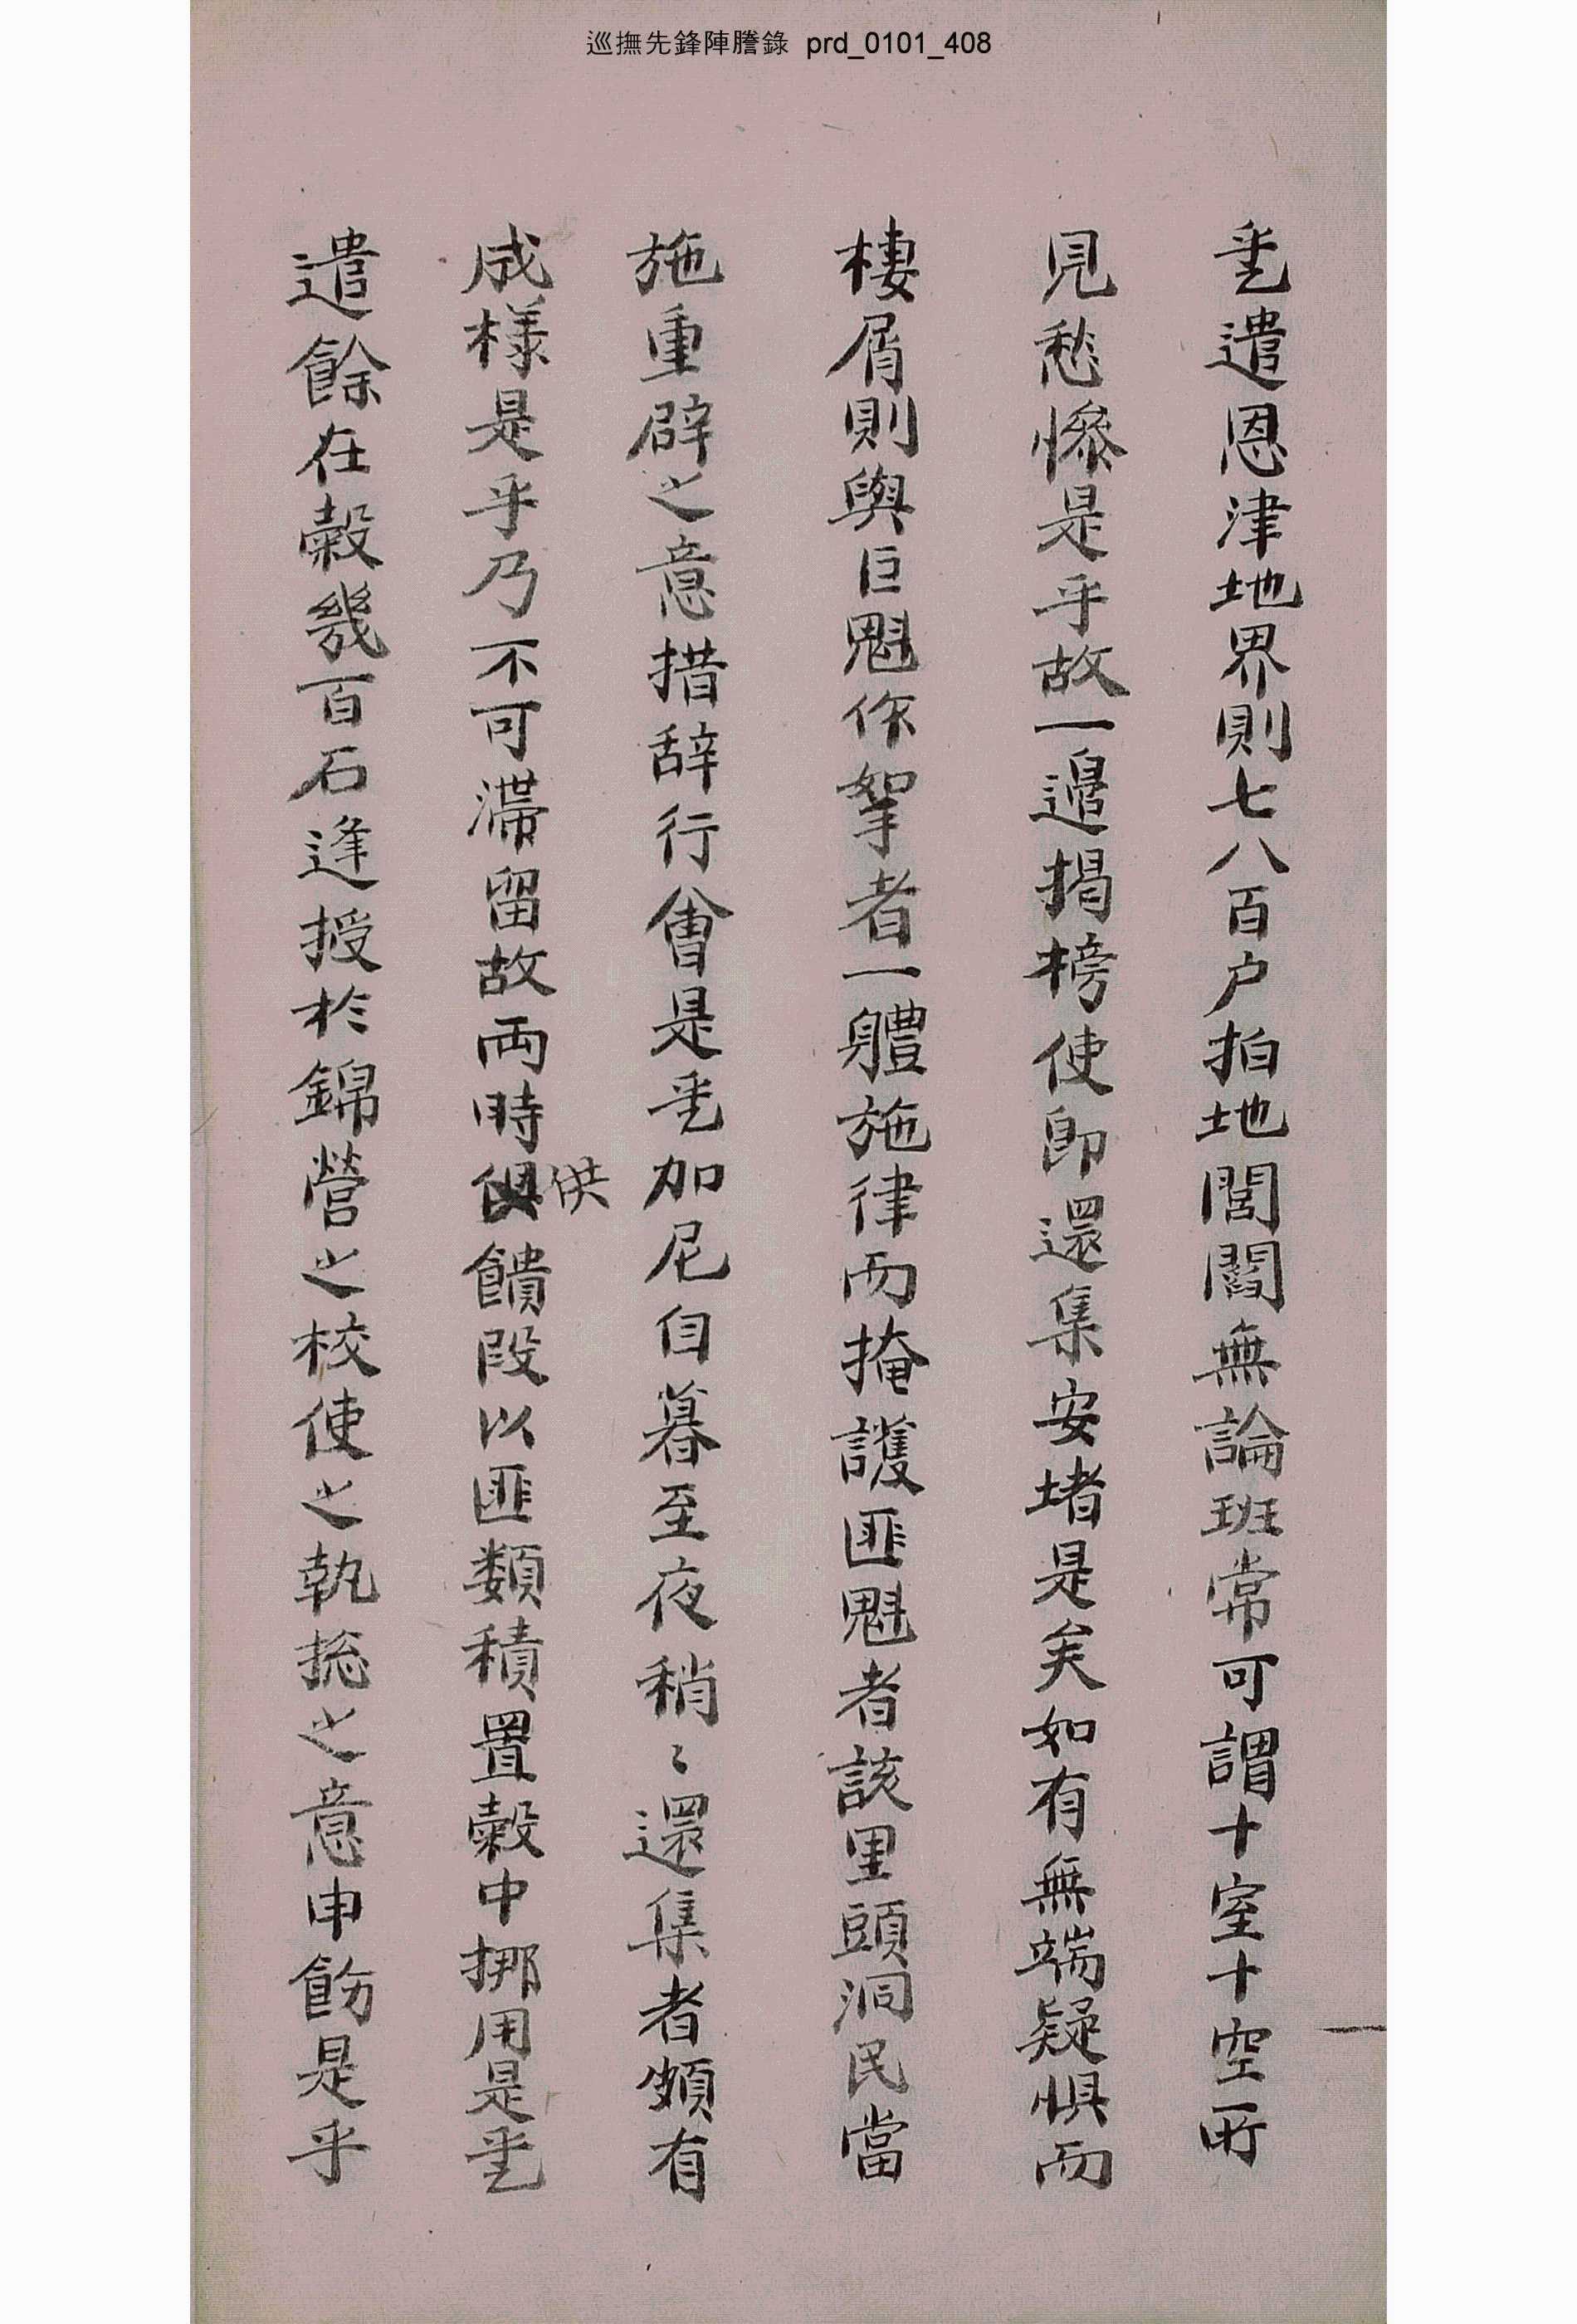 巡撫先鋒陣謄錄 prd_0101_408
乖遣恩津地界則七八百户拍地閭閻無論班常可謂十室十空所
見愁慘是乎故一邊揭榜使卽還集安堵是矣如有無端疑惧而
棲屑則與巨魁作挐者一軆施律而掩護匪魁者該里頭洞民當
施重辟之意措辞行會是乖加尼自暮至夜稍〻還集者頗有
成樣是乎乃不可滯留故両時俱供饋段以匪類積置榖中挪用是乖
遣餘在榖幾百石逢授於錦營之校使之執捴之意申飭是乎